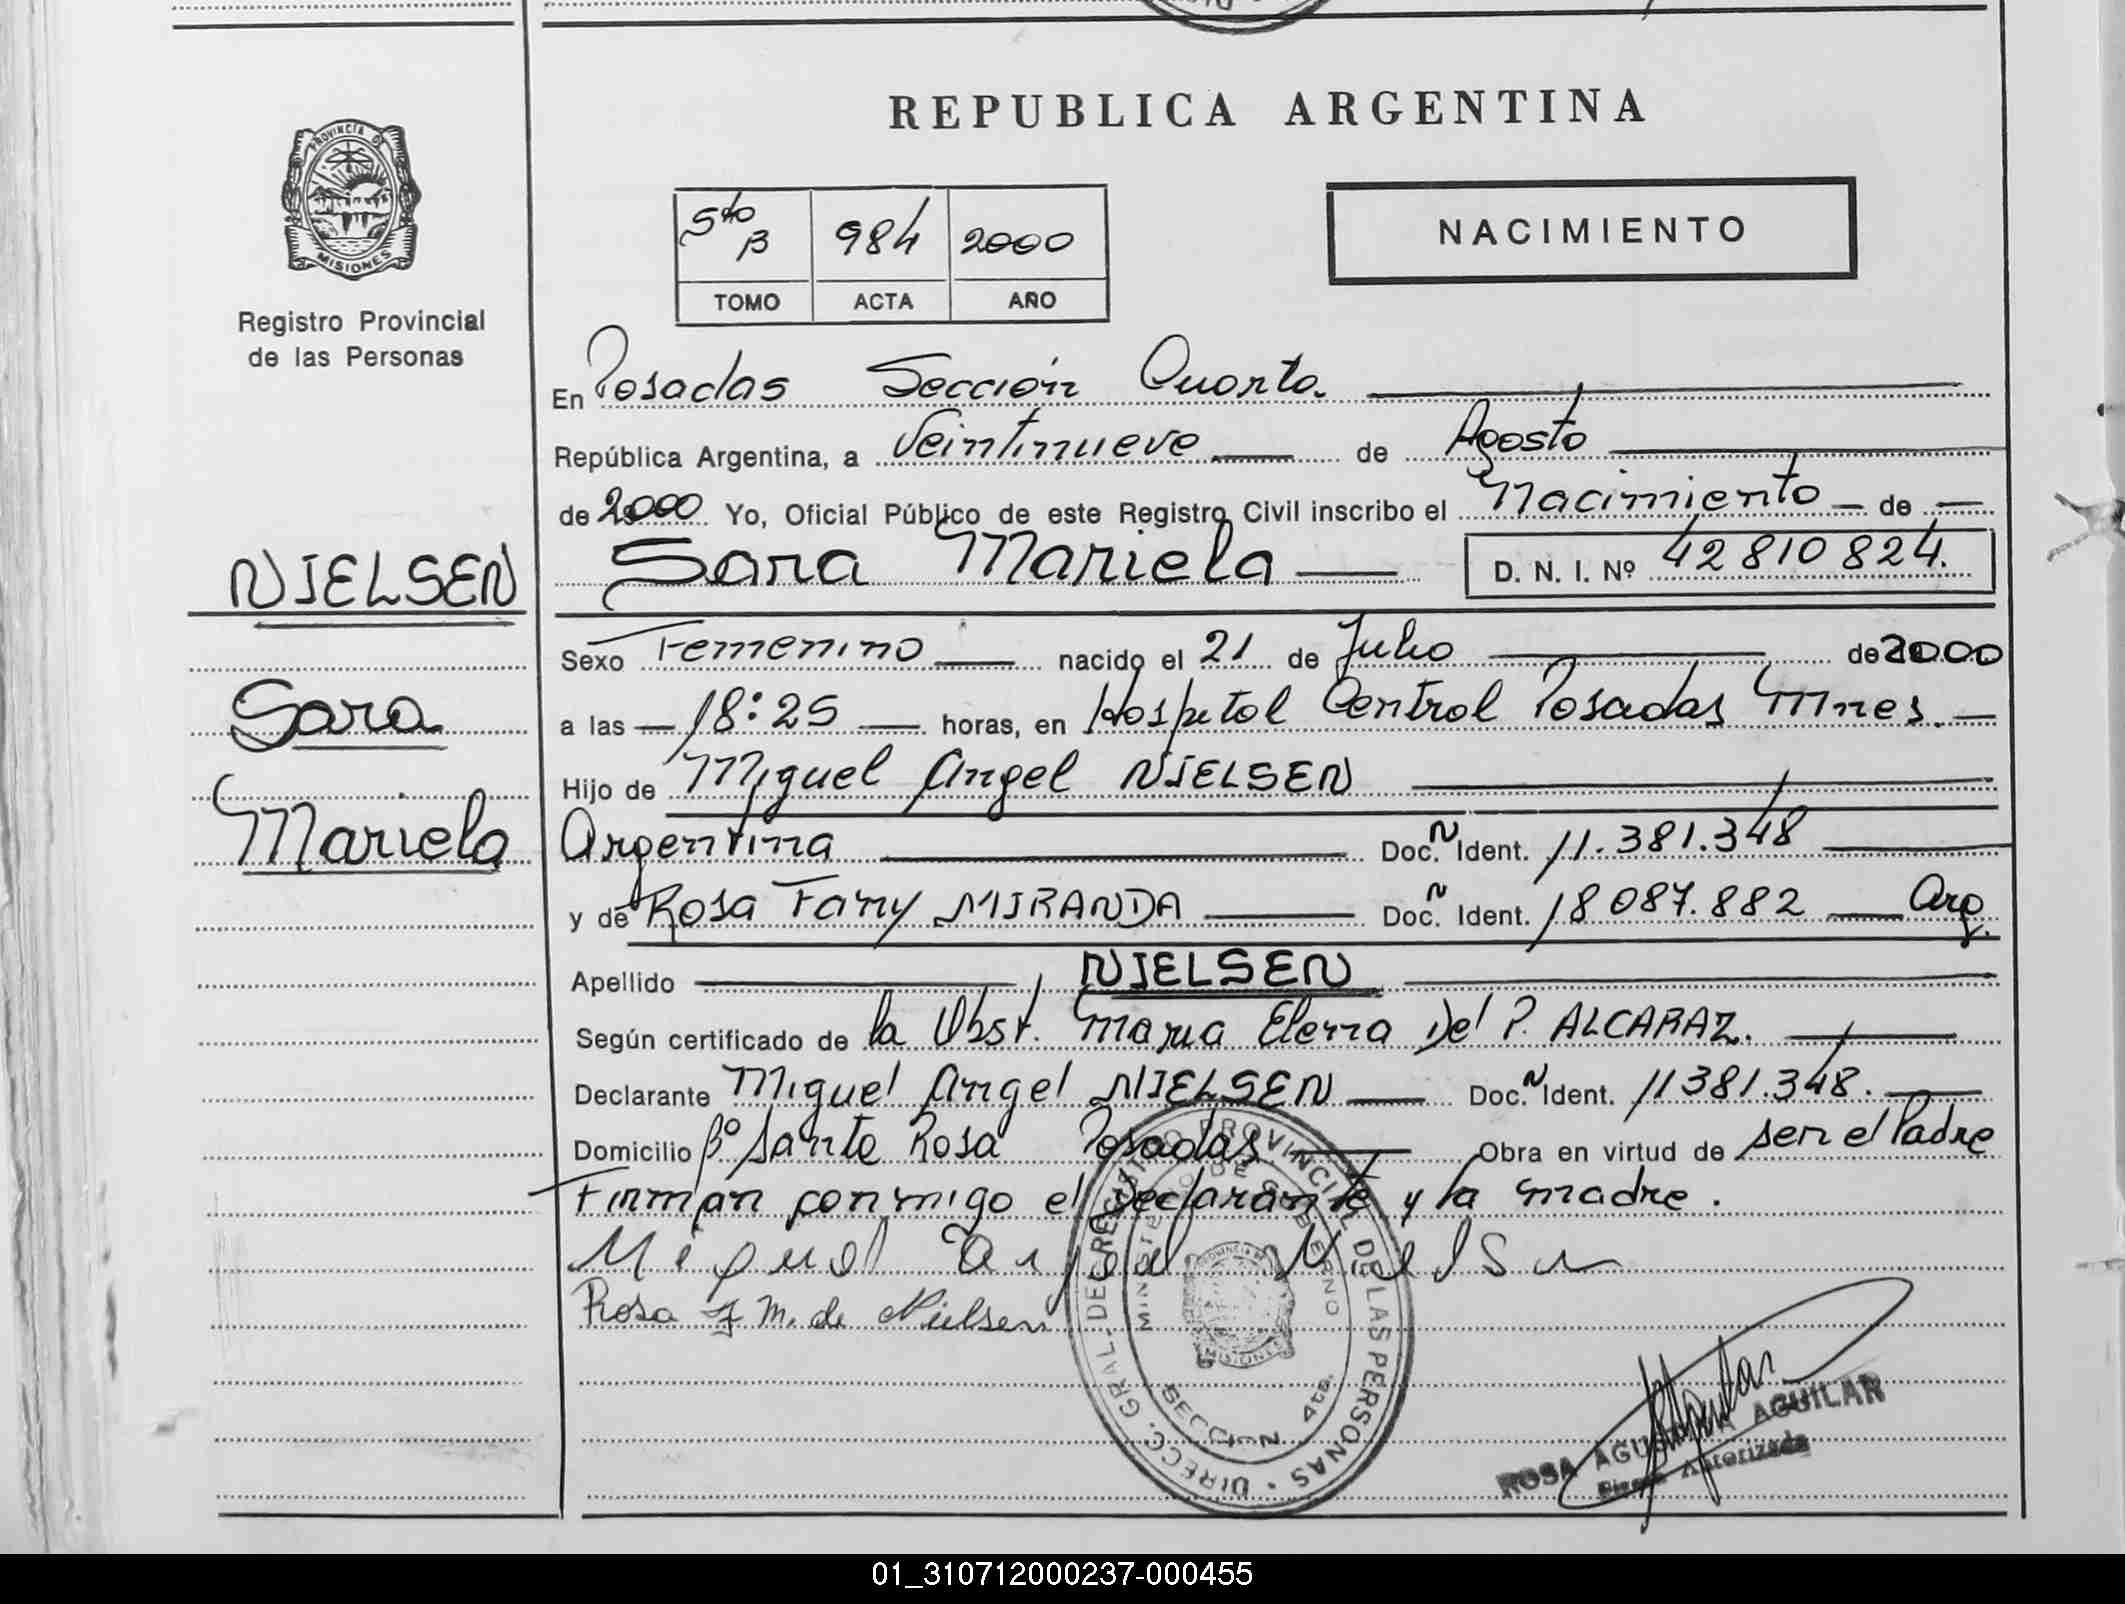 REPUBLICA ARGENTINA
PROVINCIA DE
MISIONES
Registro Provincial
de las Personas
5to B 984 2000
TOMO ACTA AÑO
NACIMIENTO
En Posadas Sección Cuarta.
República Argentina, a Veintinueve de Agosto
de 2000 Yo, Oficial Público de este Registro Civil inscribo el Nacimiento de
Sara Mariela D. N. I. Nº 42810824.
NIELSEN
Sara
Mariela
Sexo Femenino nacido el 21 de Julio de 2000
a las 18:25 horas, en Hospital Central Posadas Mnes.
Hijo de Miguel Angel NIELSEN
Argentina Doc. N Ident. 11.381.348
y de Rosa Fany MIRANDA Doc. N Ident. 18087.882 Arg.
Apellido NIELSEN
Según certificado de la Obst. Maria Elena Del P. ALCARAZ.
Declarante Miguel Angel NIELSEN Doc. N Ident. 11381.348.
Domicilio Bº Santa Rosa Posadas Obra en virtud de ser el Padre
Firman conmigo el Declarante y la madre.
Miguel Angel Nielsen
Rosa F M. de Nielsen
DIRECC. GRAL. DE REGISTRO PROVINCIAL DE LAS PERSONAS
MINISTERIO DE GOBIERNO
PROVINCIA DE
MISIONES
SECCION 4ta.
Aguilar
ROSA AGUSTINA AGUILAR
Firma Autorizada
01_310712000237-000455